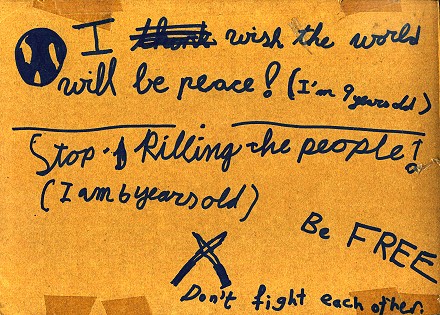 I wish the world
will be peace! (I'm 9 years old)
Stop Killing the people!
(I am 6 years old)
Be FREE
Don't fight each other.